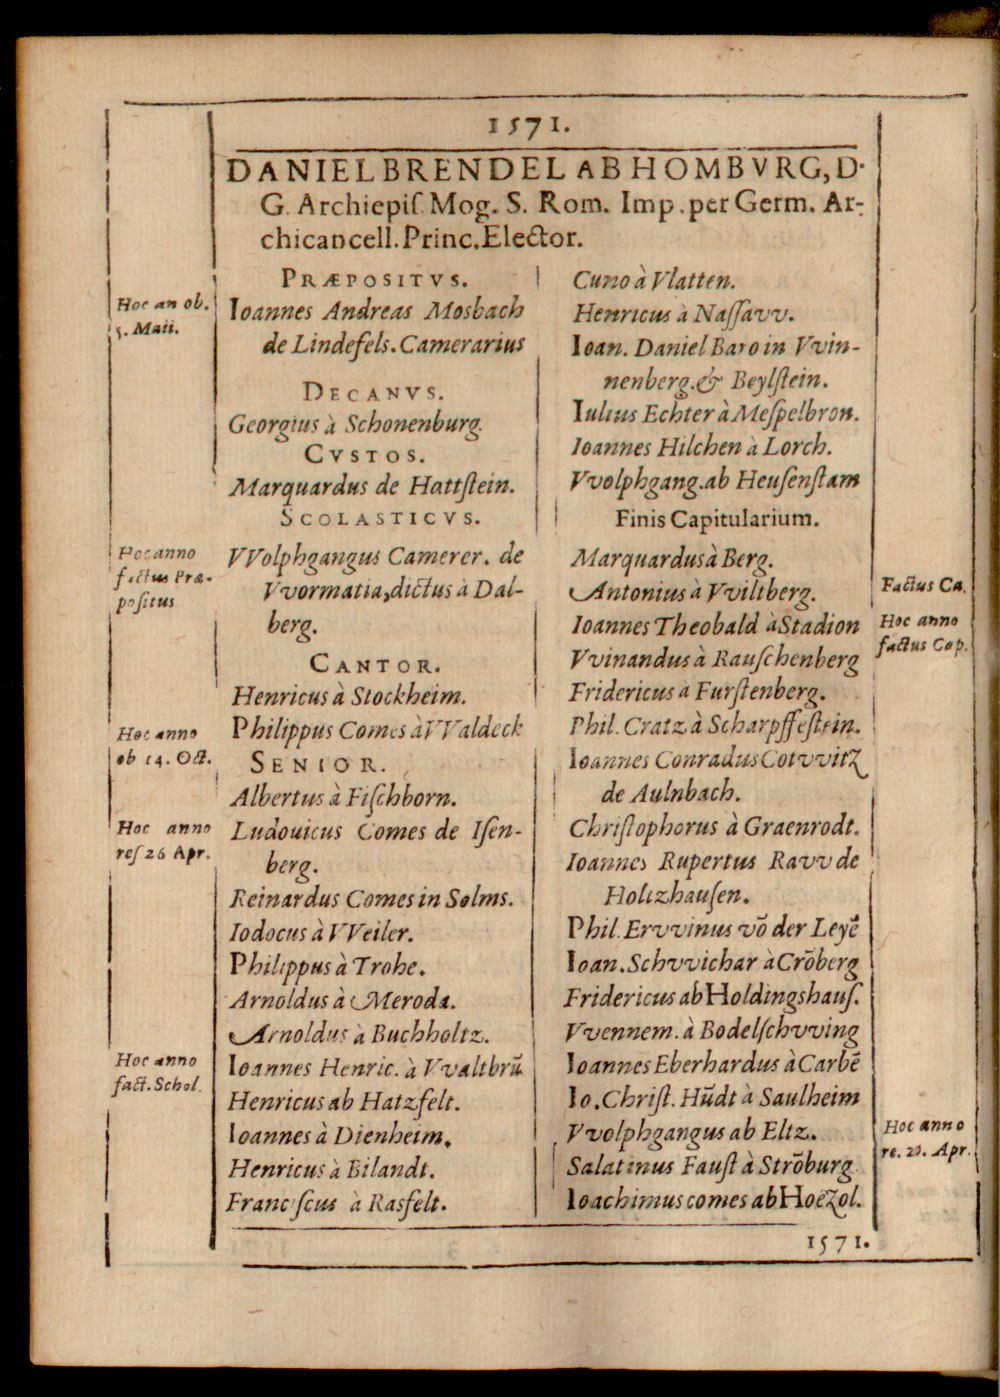 1571.
DANIEL BRENDEL AB HOMBVRG, D.
G. Archiepiſ. Mog. S. Rom. Imp. per Germ. Ar-
chicancell. Princ. Elector.
PRÆPOSITVS.
Hoc an ob.
5. Maii.
Ioannes Andreas Mosbach
de Lindefels. Camerarius
DECANVS.
Georgius à Schonenburg.
CVSTOS.
Marquardus de Hattſtein.
SCOLASTICVS.
Hoc anno
factus Præ-
poſitus
VVolphgangus Camerer. de
Vvormatia, dictus à Dal-
berg.
CANTOR.
Henricus à Stockheim.
Hoc anno
ob 14. Oct.
Philippus Comes à VValdeck
SENIOR.
Albertus à Fiſchborn.
Hoc anno
reſ 26 Apr.
Ludouicus Comes de Iſen-
berg.
Reinardus Comes in Solms.
Iodocus à VVeiler.
Philippus à Trohe.
Arnoldus à Meroda.
Arnoldus à Buchholtz.
Hoc anno
fact. Schol.
Ioannes Henric. à Vvaltbrū
Henricus ab Hatzfelt.
Ioannes à Dienheim.
Henricus à Bilandt.
Franciſcus à Rasfelt.
Cuno à Vlatten.
Henricus à Naſſavv.
Ioan. Daniel Baro in Vvin-
nenberg. & Beylſtein.
Iulius Echter à Meſpelbron.
Ioannes Hilchen à Lorch.
Vvolphgang. ab Heuſenſtam
Finis Capitularium.
Marquardus à Berg.
Antonius à Vviltberg.
Factus Ca.
Ioannes Theobald à Stadion
Hoc anno
factus Cap.
Vvinandus à Rauſchenberg
Fridericus à Furſtenberg.
Phil. Cratz à Scharpffeſtein.
Ioannes Conradus Cotvvitz
de Aulnbach.
Chriſtophorus à Graenrodt.
Ioannes Rupertus Ravv de
Holtzhauſen.
Phil. Ervvinus vō der Leyē
Ioan. Schvvichar à Crōberg
Fridericus ab Holdingshauſ.
Vvennem. à Bodelſchvving
Ioannes Eberhardus à Carbē
Io. Chriſt. Hūdt à Saulheim
Vvolphgangus ab Eltz.
Hoc anno
re. 20. Apr.
Salatinus Fauſt à Strōburg
Ioachimus comes ab Hoēzol.
1571.